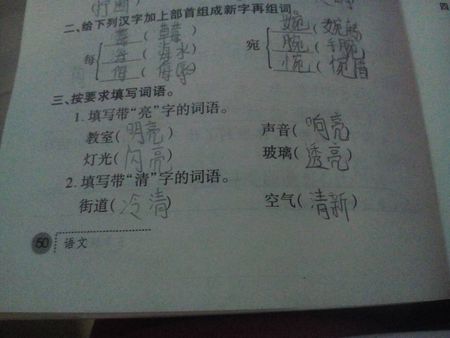 四
二、给下列汉字加上部首组成新字再组词
每 莓(草莓) 宛 婉(
海(海水) 腕(手腕)
惋(
三、按要求填写词语。
1. 填写带“亮”字的词语。
教室(明亮) 声音(响亮)
灯光(闪亮) 玻璃(透亮)
2. 填写带“清”字的词语。
街道(冷清) 空气(清新)
60 语文